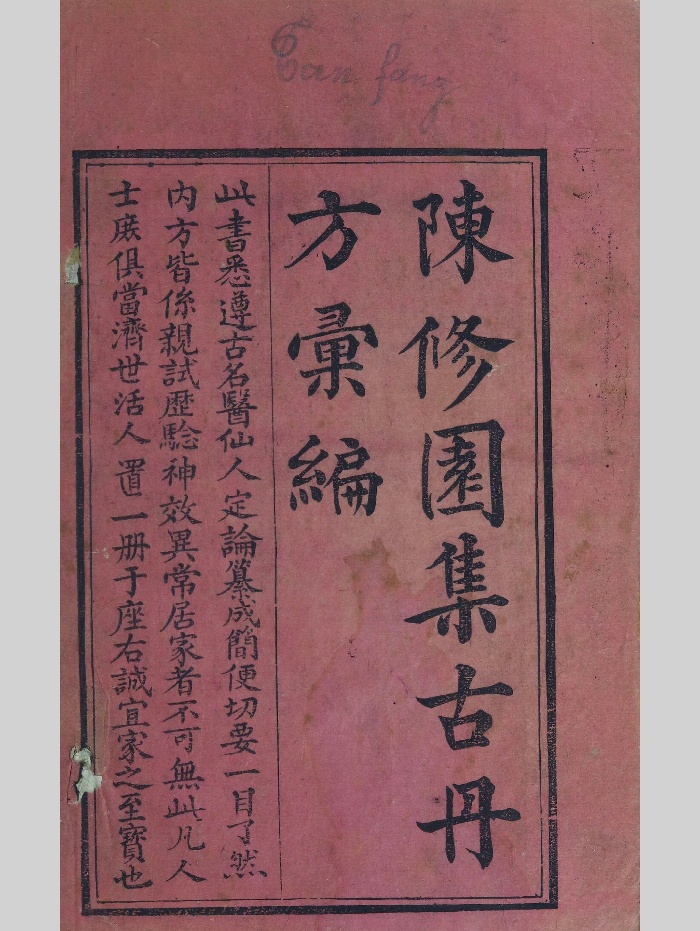 Tan fang
陳修園集古丹
方彙編
此書悉遵古名醫仙人定論纂成簡便切要一目了然
內方皆係親試歷騐神效異常居家者不可無此凡人
士庻俱當濟世活人置一册于座右誠宜家之至寳也